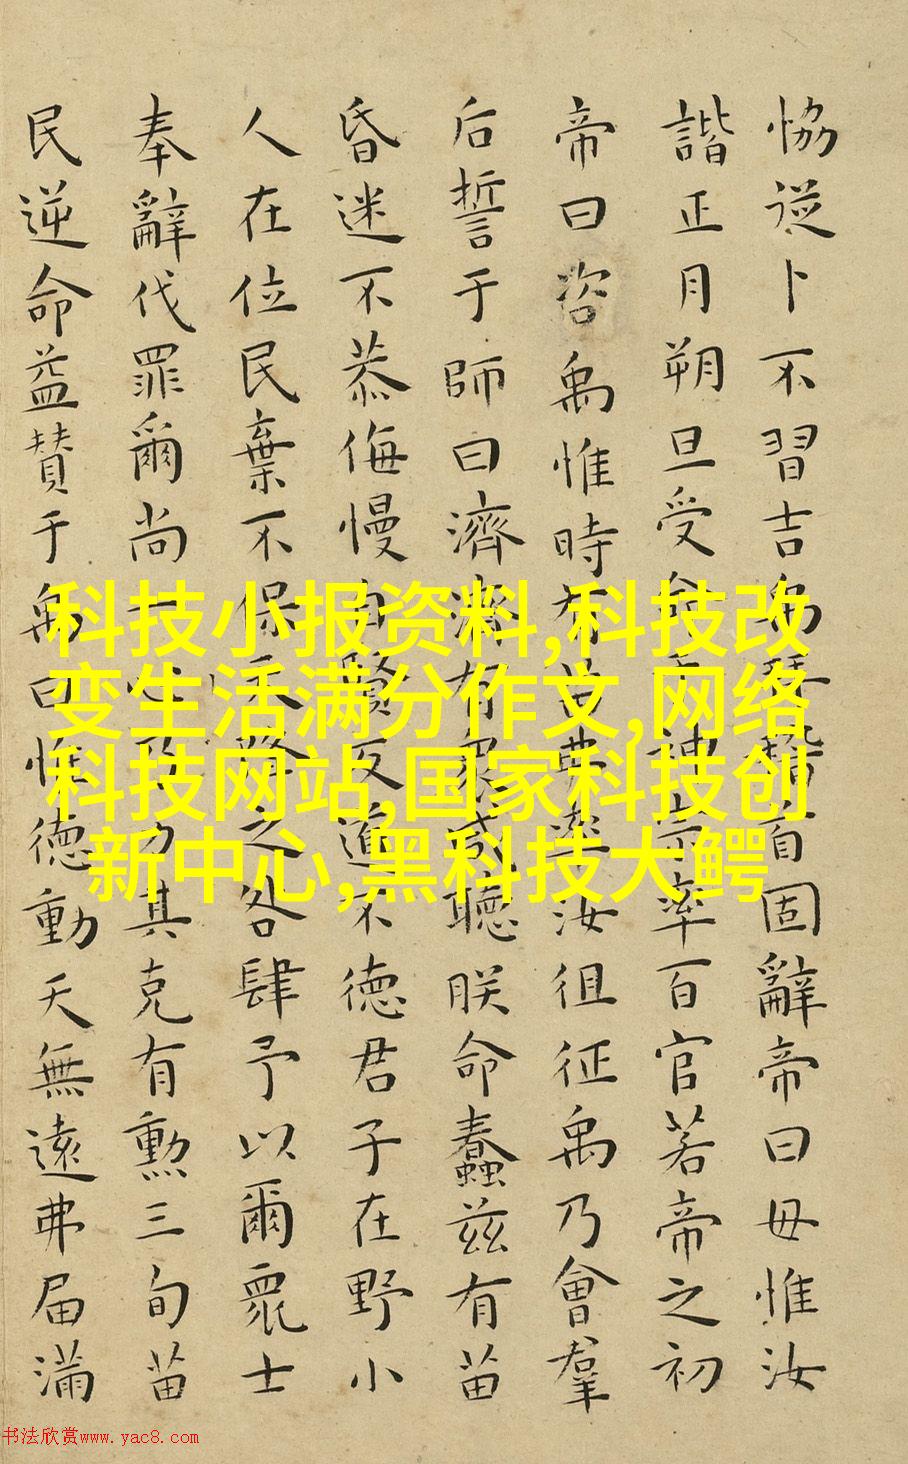 恊從卜不習吉禹拜稽首固辭帝曰毋惟汝
諧正月朔旦受命于神宗率百官若帝之初
帝曰咨禹惟時有苗弗率汝徂征禹乃會羣
后誓于師曰濟濟有衆咸聽朕命蠢茲有苗
昏迷不恭侮慢自賢反道不德君子在野小
人在位民棄不保天降之咎肆予以爾衆士
奉辭伐罪爾尚一心乃力其克有勳三旬苗
民逆命益贊于禹曰惟德動天無遠弗屆滿
科技小报资料,科技改
变生活满分作文,网络
科技网站,国家科技创
新中心,黑科技大鳄
书法欣赏www.yac8.com